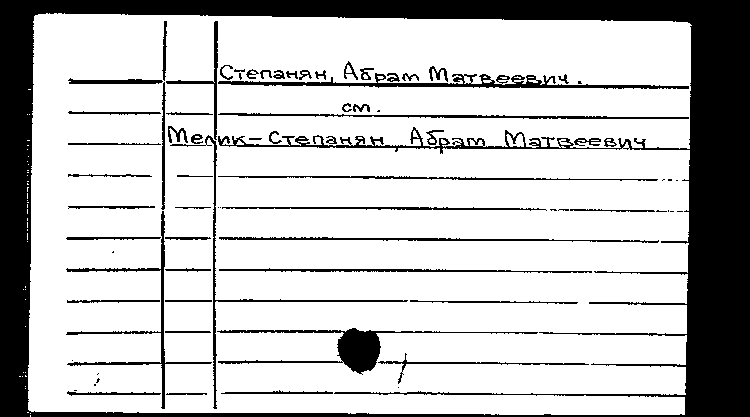 Степанян, Абрам Матвеевич.
см.
Мелик-Степанян, Абрам Матвеевич